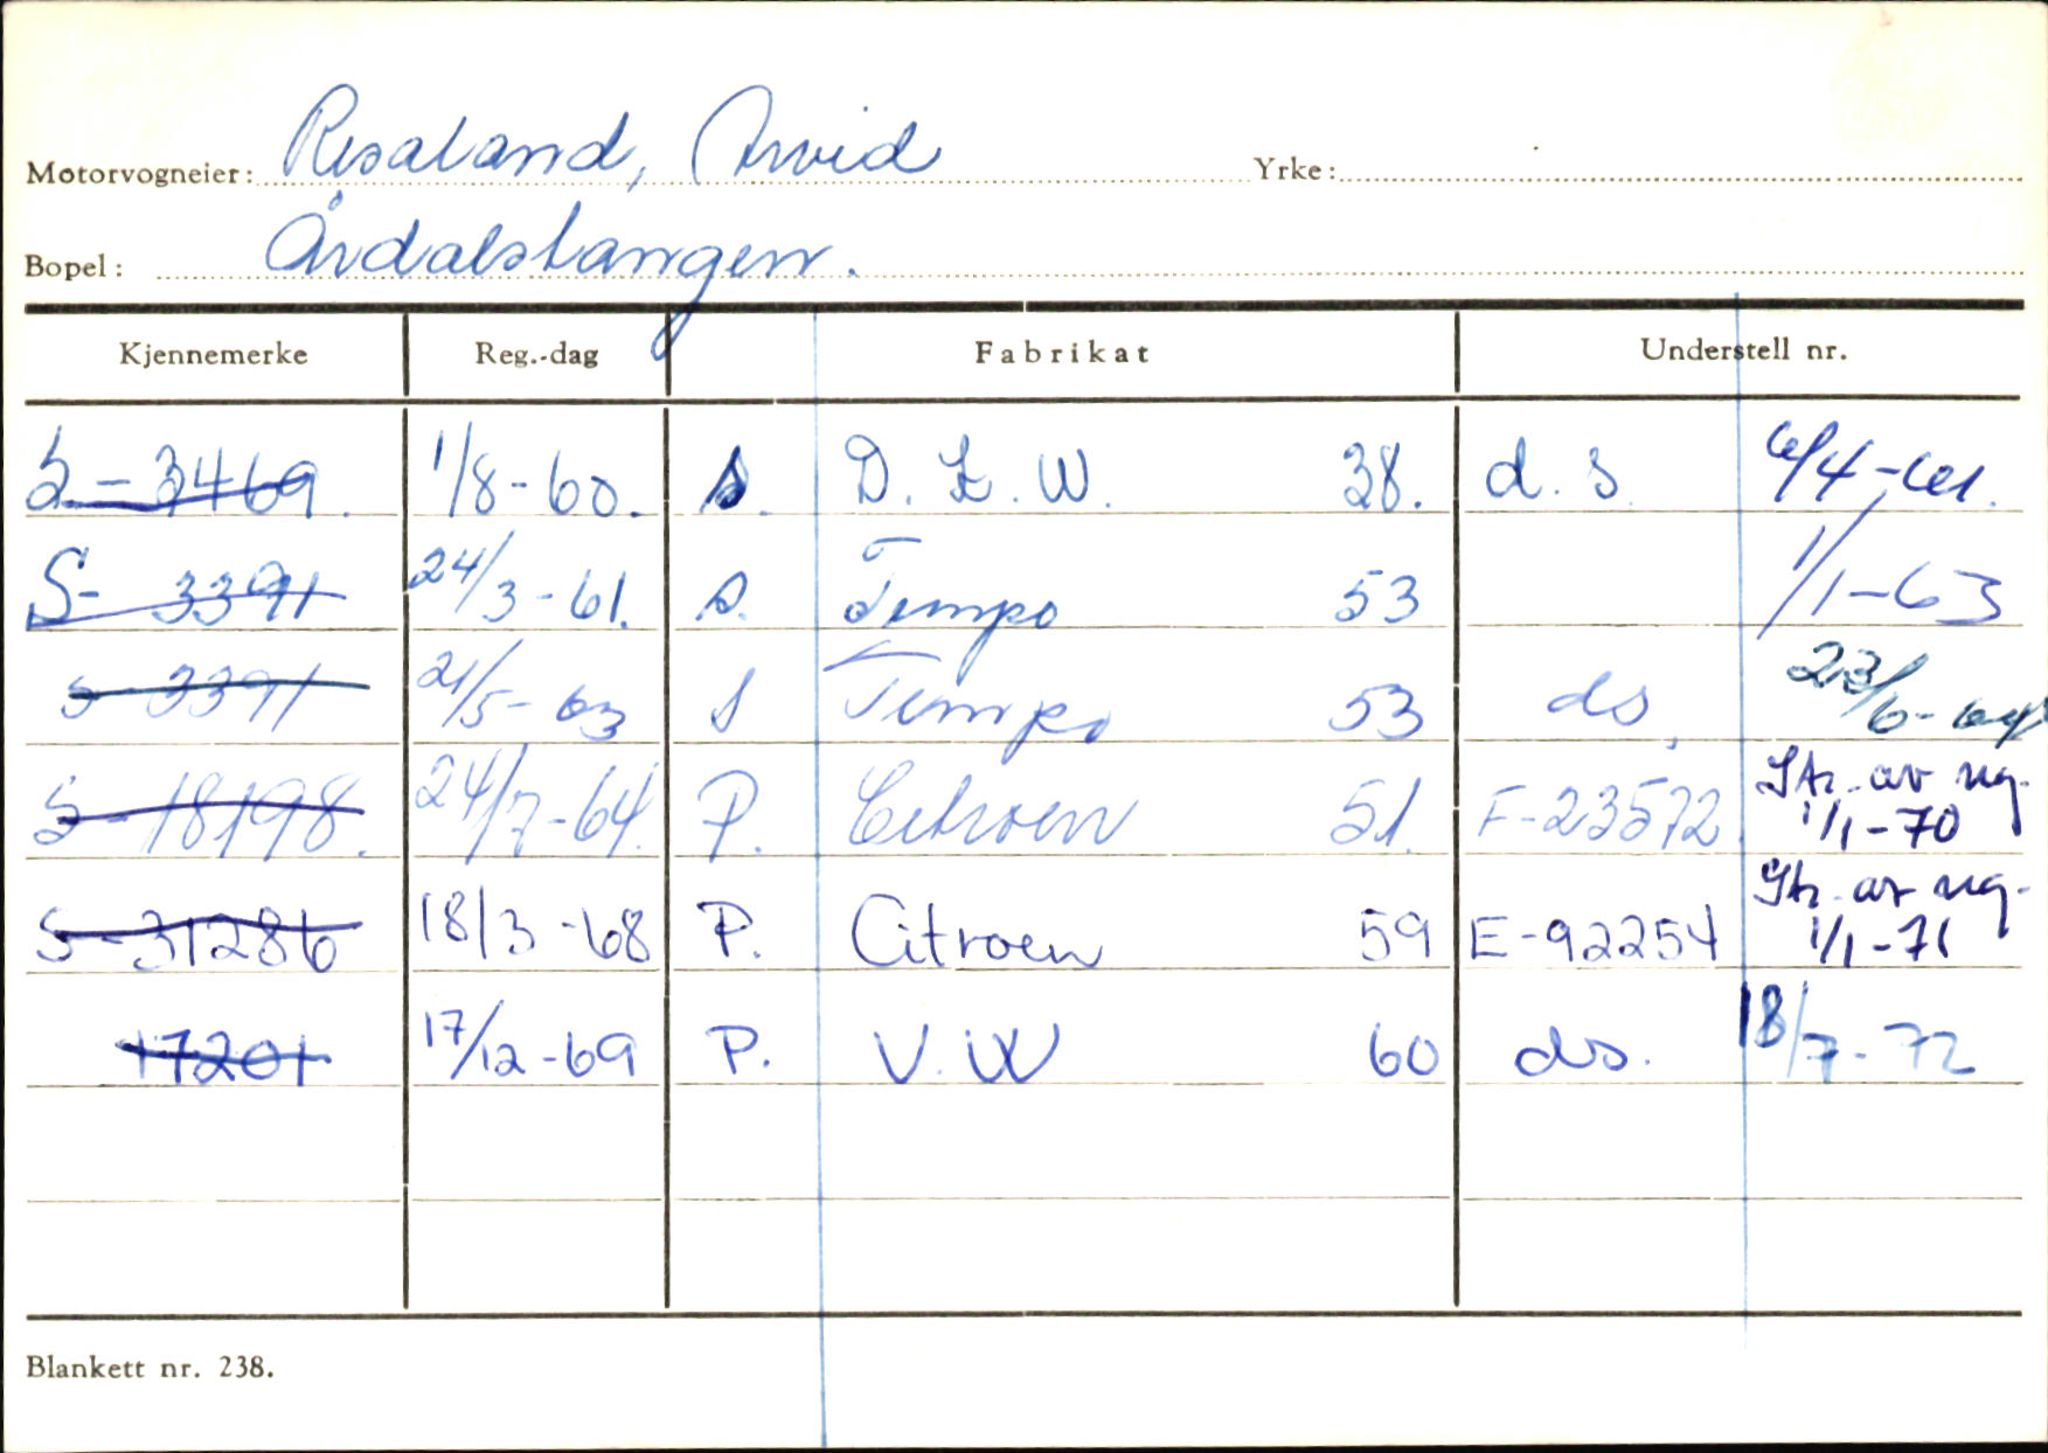 Motorvogneier: Resaland, Arvid Yrke:
Bopel: Årdalstangen.
Kjennemerke Reg.-dag Fabrikat Understell nr.
S-3469. 1/8-60. s. D.K.W. 38. d.s. 6/4-61.
S- 3391 24/3-61. s. Tempo 53 1/1-63
S-3391 21/5-63 s Tempo 53 ds, 23/6-64
S-18198. 24/7-64. P. Citroen 51. F-23572. Str. av reg.
1/1-70
S-31286 18/3-68 P. Citroen 59 E-92254 Str. av reg.
1/1-71
17201 17/12-69 P. V.W 60 ds. 18/7-72
Blankett nr. 238.